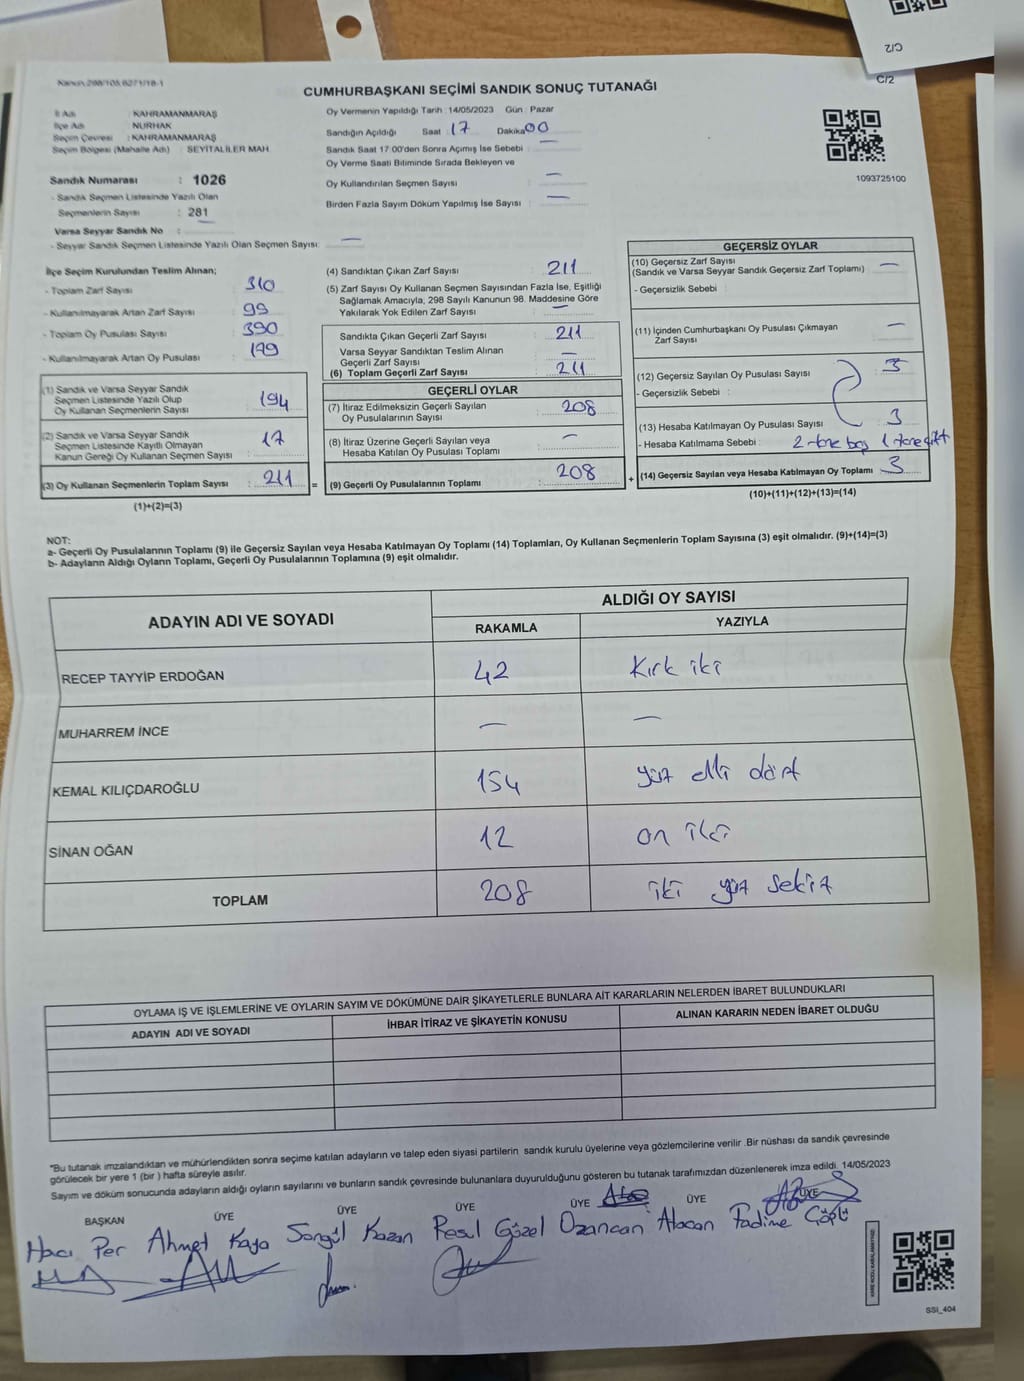 C/2
Kanun 298/105,6271/18-1
C/2
CUMHURBAŞKANI SEÇİMİ SANDIK SONUÇ TUTANAĞI
İl Adı : KAHRAMANMARAŞ
İlçe Adı : NURHAK
Seçim Çevresi : KAHRAMANMARAŞ
Seçim Bölgesi (Mahalle Adı) : SEYİTALİLER MAH.
Sandık Numarası : 1026
- Sandık Seçmen Listesinde Yazılı Olan
Seçmenlerin Sayısı : 281
Varsa Seyyar Sandık No :
- Seyyar Sandık Seçmen Listesinde Yazılı Olan Seçmen Sayısı: —
Oy Vermenin Yapıldığı Tarih : 14/05/2023 Gün : Pazar
Sandığın Açıldığı Saat 17 Dakika 00
Sandık Saat 17:00'den Sonra Açımış İse Sebebi : —
Oy Verme Saati Bitiminde Sırada Bekleyen ve
Oy Kullandırılan Seçmen Sayısı : —
Birden Fazla Sayım Döküm Yapılmış İse Sayısı : —
1093725100
İlçe Seçim Kurulundan Teslim Alınan;
- Toplam Zarf Sayısı : 310
- Kullanılmayarak Artan Zarf Sayısı : 99
- Toplam Oy Pusulası Sayısı : 390
- Kullanılmayarak Artan Oy Pusulası : 179
(1) Sandık ve Varsa Seyyar Sandık
Seçmen Listesinde Yazılı Olup
Oy Kullanan Seçmenlerin Sayısı : 194
(2) Sandık ve Varsa Seyyar Sandık
Seçmen Listesinde Kayıtlı Olmayan
Kanun Gereği Oy Kullanan Seçmen Sayısı : 17
(3) Oy Kullanan Seçmenlerin Toplam Sayısı : 211 =
(1)+(2)=(3)
(4) Sandıktan Çıkan Zarf Sayısı : 211
(5) Zarf Sayısı Oy Kullanan Seçmen Sayısından Fazla İse, Eşitliği
Sağlamak Amacıyla, 298 Sayılı Kanunun 98. Maddesine Göre
Yakılarak Yok Edilen Zarf Sayısı : —
Sandıkta Çıkan Geçerli Zarf Sayısı : 211
Varsa Seyyar Sandıktan Teslim Alınan
Geçerli Zarf Sayısı : —
(6) Toplam Geçerli Zarf Sayısı : 211
GEÇERLİ OYLAR
(7) İtiraz Edilmeksizin Geçerli Sayılan
Oy Pusulalarının Sayısı : 208
(8) İtiraz Üzerine Geçerli Sayılan veya
Hesaba Katılan Oy Pusulası Toplamı : —
(9) Geçerli Oy Pusulalarının Toplamı : 208 +
GEÇERSİZ OYLAR
(10) Geçersiz Zarf Sayısı : —
(Sandık ve Varsa Seyyar Sandık Geçersiz Zarf Toplamı)
- Geçersizlik Sebebi :
(11) İçinden Cumhurbaşkanı Oy Pusulası Çıkmayan
Zarf Sayısı : —
(12) Geçersiz Sayılan Oy Pusulası Sayısı : 3
- Geçersizlik Sebebi :
(13) Hesaba Katılmayan Oy Pusulası Sayısı : 3
- Hesaba Katılmama Sebebi : 2 tane boş 1 tane çift
(14) Geçersiz Sayılan veya Hesaba Katılmayan Oy Toplamı : 3
(10)+(11)+(12)+(13)=(14)
NOT:
a- Geçerli Oy Pusulalarının Toplamı (9) ile Geçersiz Sayılan veya Hesaba Katılmayan Oy Toplamı (14) Toplamları, Oy Kullanan Seçmenlerin Toplam Sayısına (3) eşit olmalıdır. (9)+(14)=(3)
b- Adayların Aldığı Oyların Toplamı, Geçerli Oy Pusulalarının Toplamına (9) eşit olmalıdır.
ADAYIN ADI VE SOYADI ALDIĞI OY SAYISI
RAKAMLA YAZIYLA
RECEP TAYYİP ERDOĞAN 42 Kırk iki
MUHARREM İNCE — —
KEMAL KILIÇDAROĞLU 154 yüz elli dört
SİNAN OĞAN 12 on iki
TOPLAM 208 iki yüz sekiz
OYLAMA İŞ VE İŞLEMLERİNE VE OYLARIN SAYIM VE DÖKÜMÜNE DAİR ŞİKAYETLERLE BUNLARA AİT KARARLARIN NELERDEN İBARET BULUNDUKLARI
ADAYIN ADI VE SOYADI İHBAR İTİRAZ VE ŞİKAYETİN KONUSU ALINAN KARARIN NEDEN İBARET OLDUĞU
"Bu tutanak imzalandıktan ve mühürlendikten sonra seçime katılan adayların ve talep eden siyasi partilerin sandık kurulu üyelerine veya gözlemcilerine verilir .Bir nüshası da sandık çevresinde
görülecek bir yere 1 (bir ) hafta süreyle asılır.
Sayım ve döküm sonucunda adayların aldığı oyların sayılarını ve bunların sandık çevresinde bulunanlara duyurulduğunu gösteren bu tutanak tarafımızdan düzenlenerek imza edildi. 14/05/2023
BAŞKAN ÜYE ÜYE ÜYE ÜYE ÜYE ÜYE
Hacı Per Ahmet Kaya Songül Kazan Resul Güzel Ozancan Atacan Fadime Çöplü
SSI_404